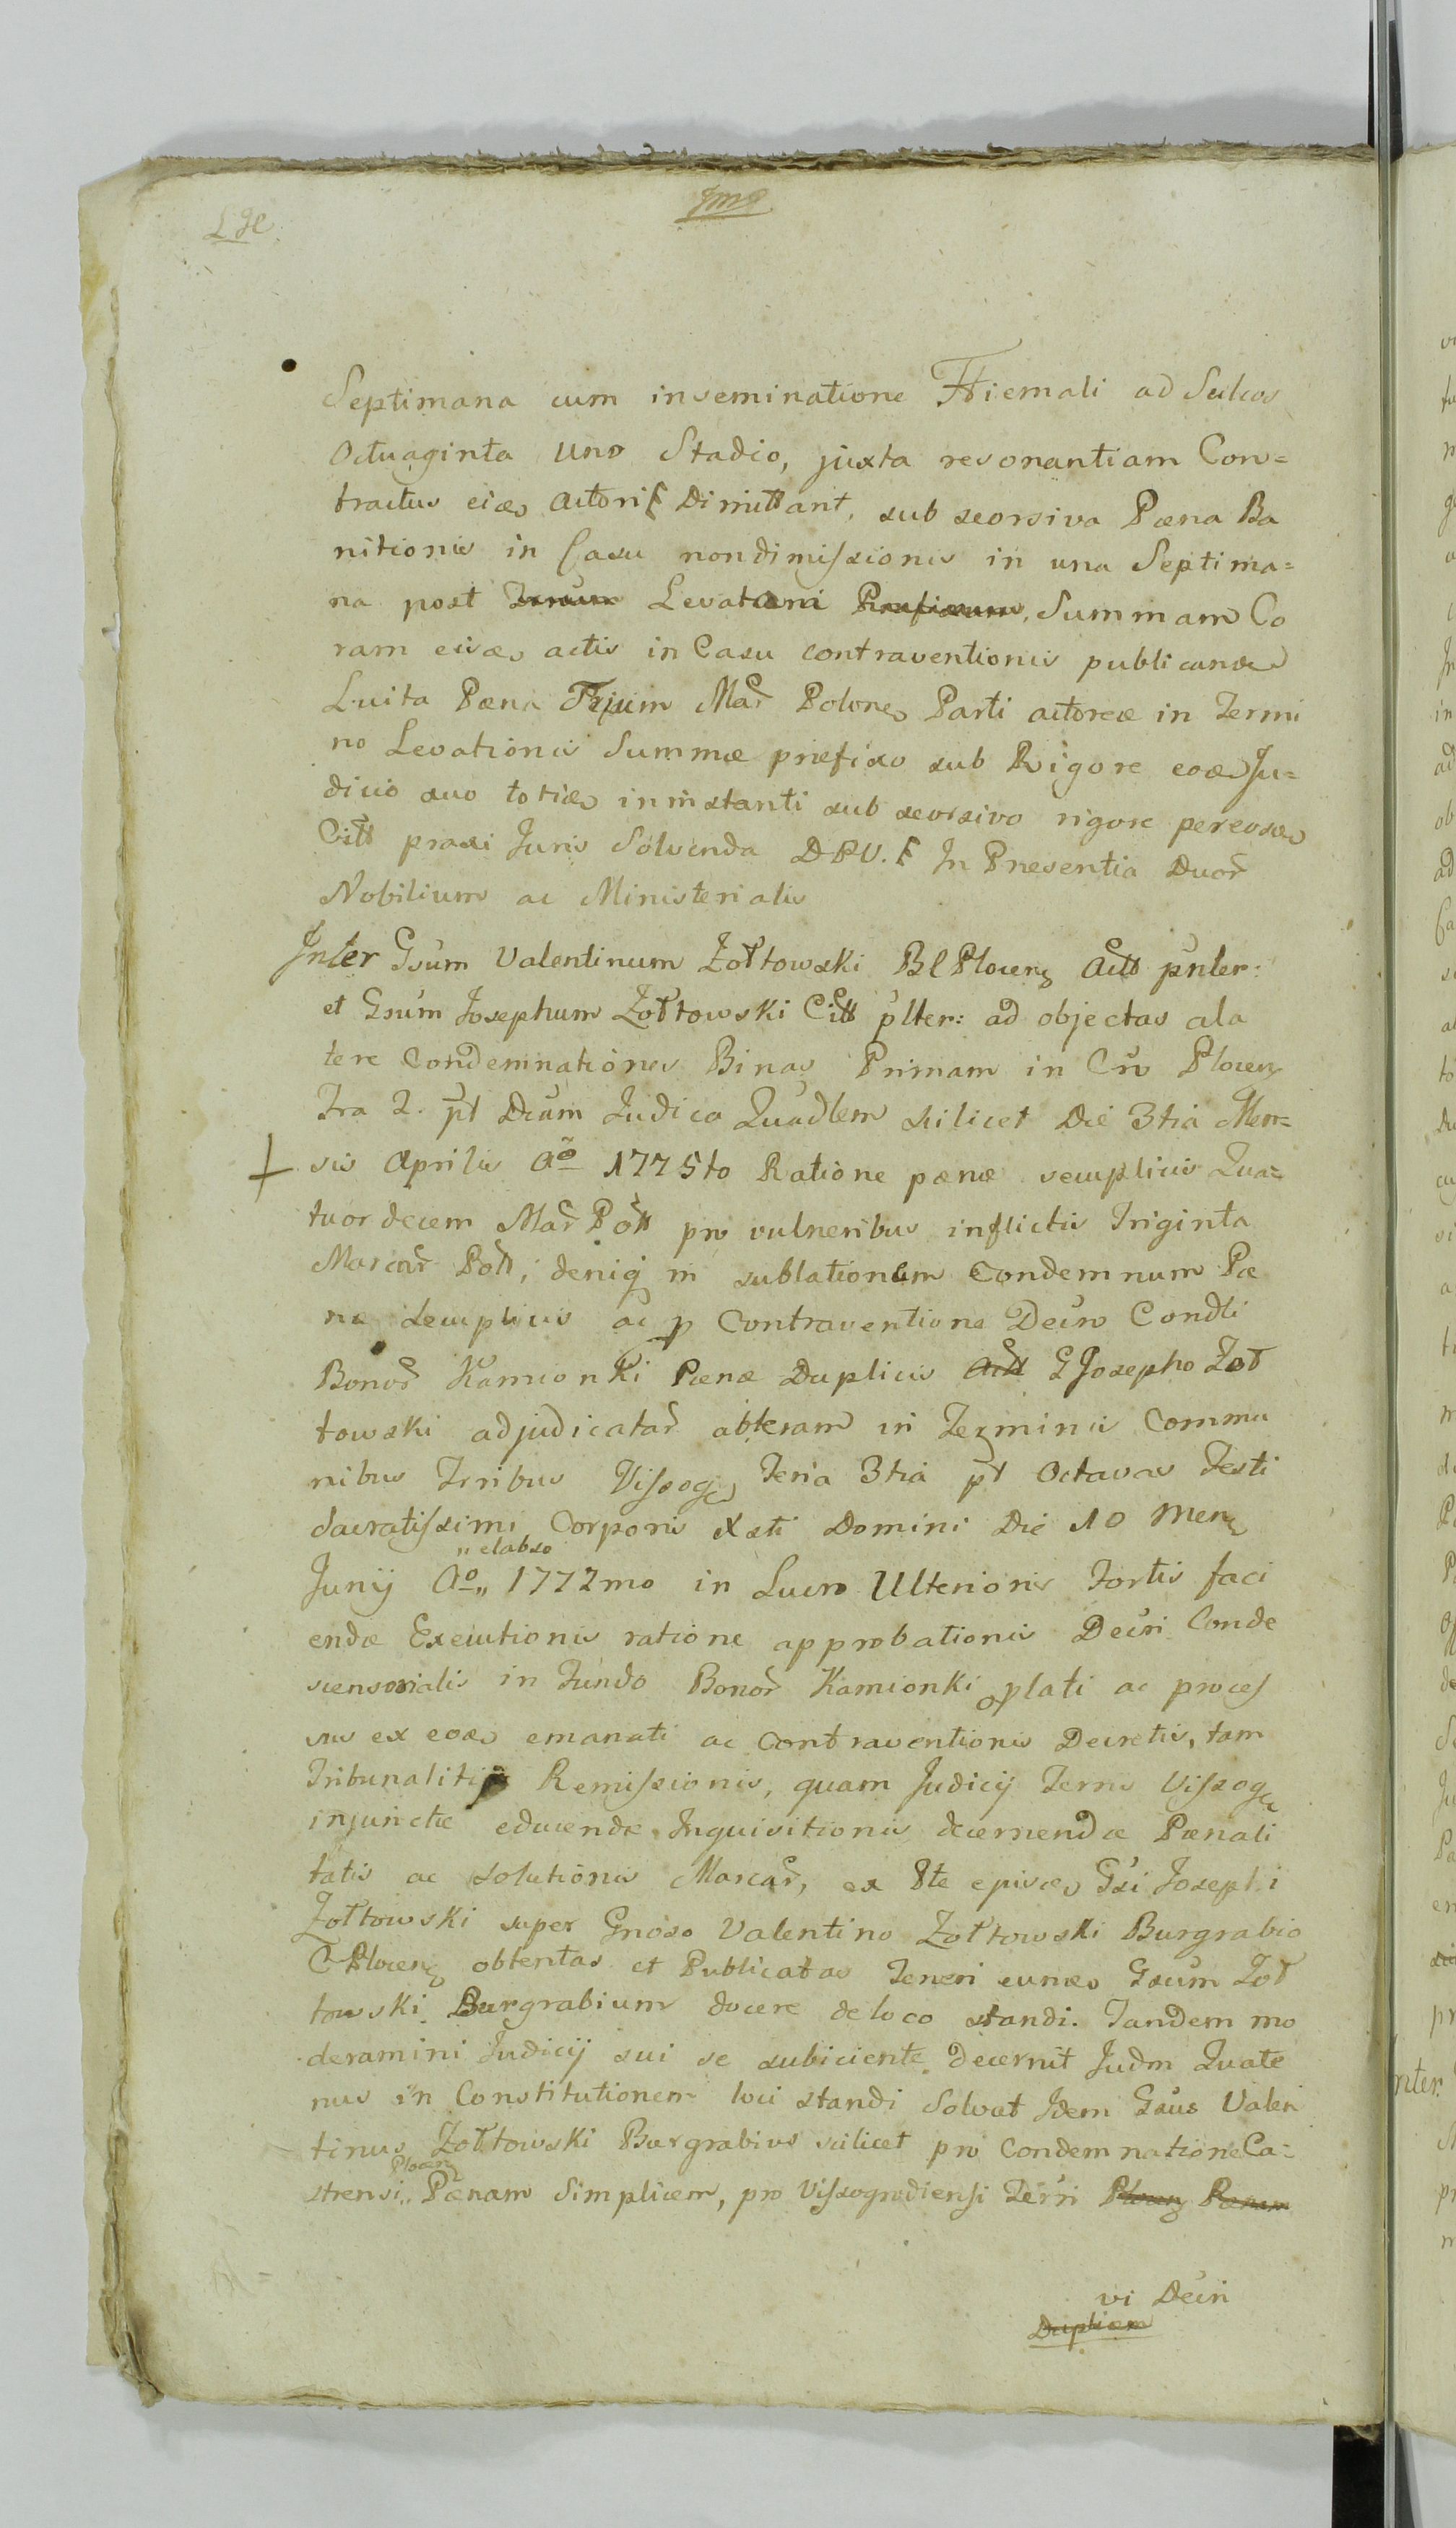 Septimana cum inseminatione Hiemali ad Sulcos
Octuaginta Uno Stadio, juxta resonantiam Con=
tractus Dimittant, sub seorsiva Pœna Ba
nitionis in Casu nondimissionis in una Septima=
na post Summam Co
ram actis in Casu contraventionis publicandæ
Luita Pœna Trium Mar Polon Parti actoreæ in Termi
no Levationis Summæ prefixo sub Rigore Ju=
dicio suo ininstanti sub seorsivo rigore
Citt praxi Juris Solvenda DPV. In Presentia Duor
Nobilium ac Ministerialis
Inter Gsum Valentinum Zołtowski Actt pnter:
et Gsum Josephum Zołtowski Citt plter: ad objectas ala
tere Condemnationes Binas Primam in
2. pt Dcum Judica scilicet Die 3tia Men=
sis Aprilis Ao 1775to Ratione pœnæ Qua=
tuordecem Mar Pott pro vulneribus inflictis Triginta
Marcar Pott, deniq in sublationem Condemnum Pœ
næ ac p Contraventione Decro Condti
Bonor Kamionki Pœnæ Duplicis Actt G Josepho Zoł
towski adjudicatar in Terminis Commu
nibus Feria 3tia pt Octavas Festi
Sacratissimi Corporis Xsti Domini Die 10 Men
"elabso
Junij Ao" 1772mo in Lucro Ulterioris fortis faci
endæ Executionis ratione approbationis Decri Conde
scensorialis in Fundo Bonor Kamionki ac proces
sus ex emanati ac Contraventionis Decretis, tam
Remissionis, quam Judicij Terris Vissog
injunctæ educendæ Inquisitionis decernendæ Pœnali
tatis ac solutionis Marcar, ex Pte Gsi Josephi
Zołtowski super Gnoso Valentino Zołtowski Burgrabio
C Plocen obtentas et Publicatas Teneri Gsum Zoł
towski Burgrabium docere de loco standi. Tandem mo
deramini Judicij sui se subiciente decernit Judm Quate
nus in Constitutionem loci standi Solvat Idem Gsus Valen
tinus Zołtowski Burgrabius scilicet pro Condemnatione Ca=
Plocen
strensi" Pœnam Simplicem, pro Vissogrodiensi Terri Plocen Pœnam
vi Decri
Duplicem